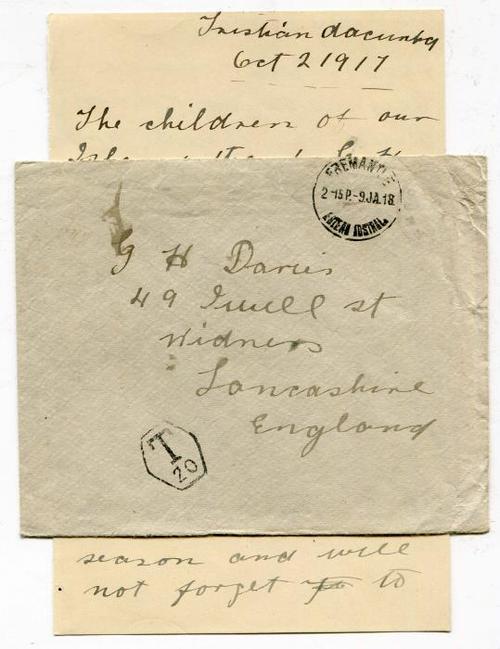 Tristian dacunha
Oct 2 1917
The children of our
FREMANTLE
2-15 P.-9.JA.18
WESTERN AUSTRAL.
G H Davies
49 Irwell st
Widness
Lancashire
England
T
20
season and will
not forget to